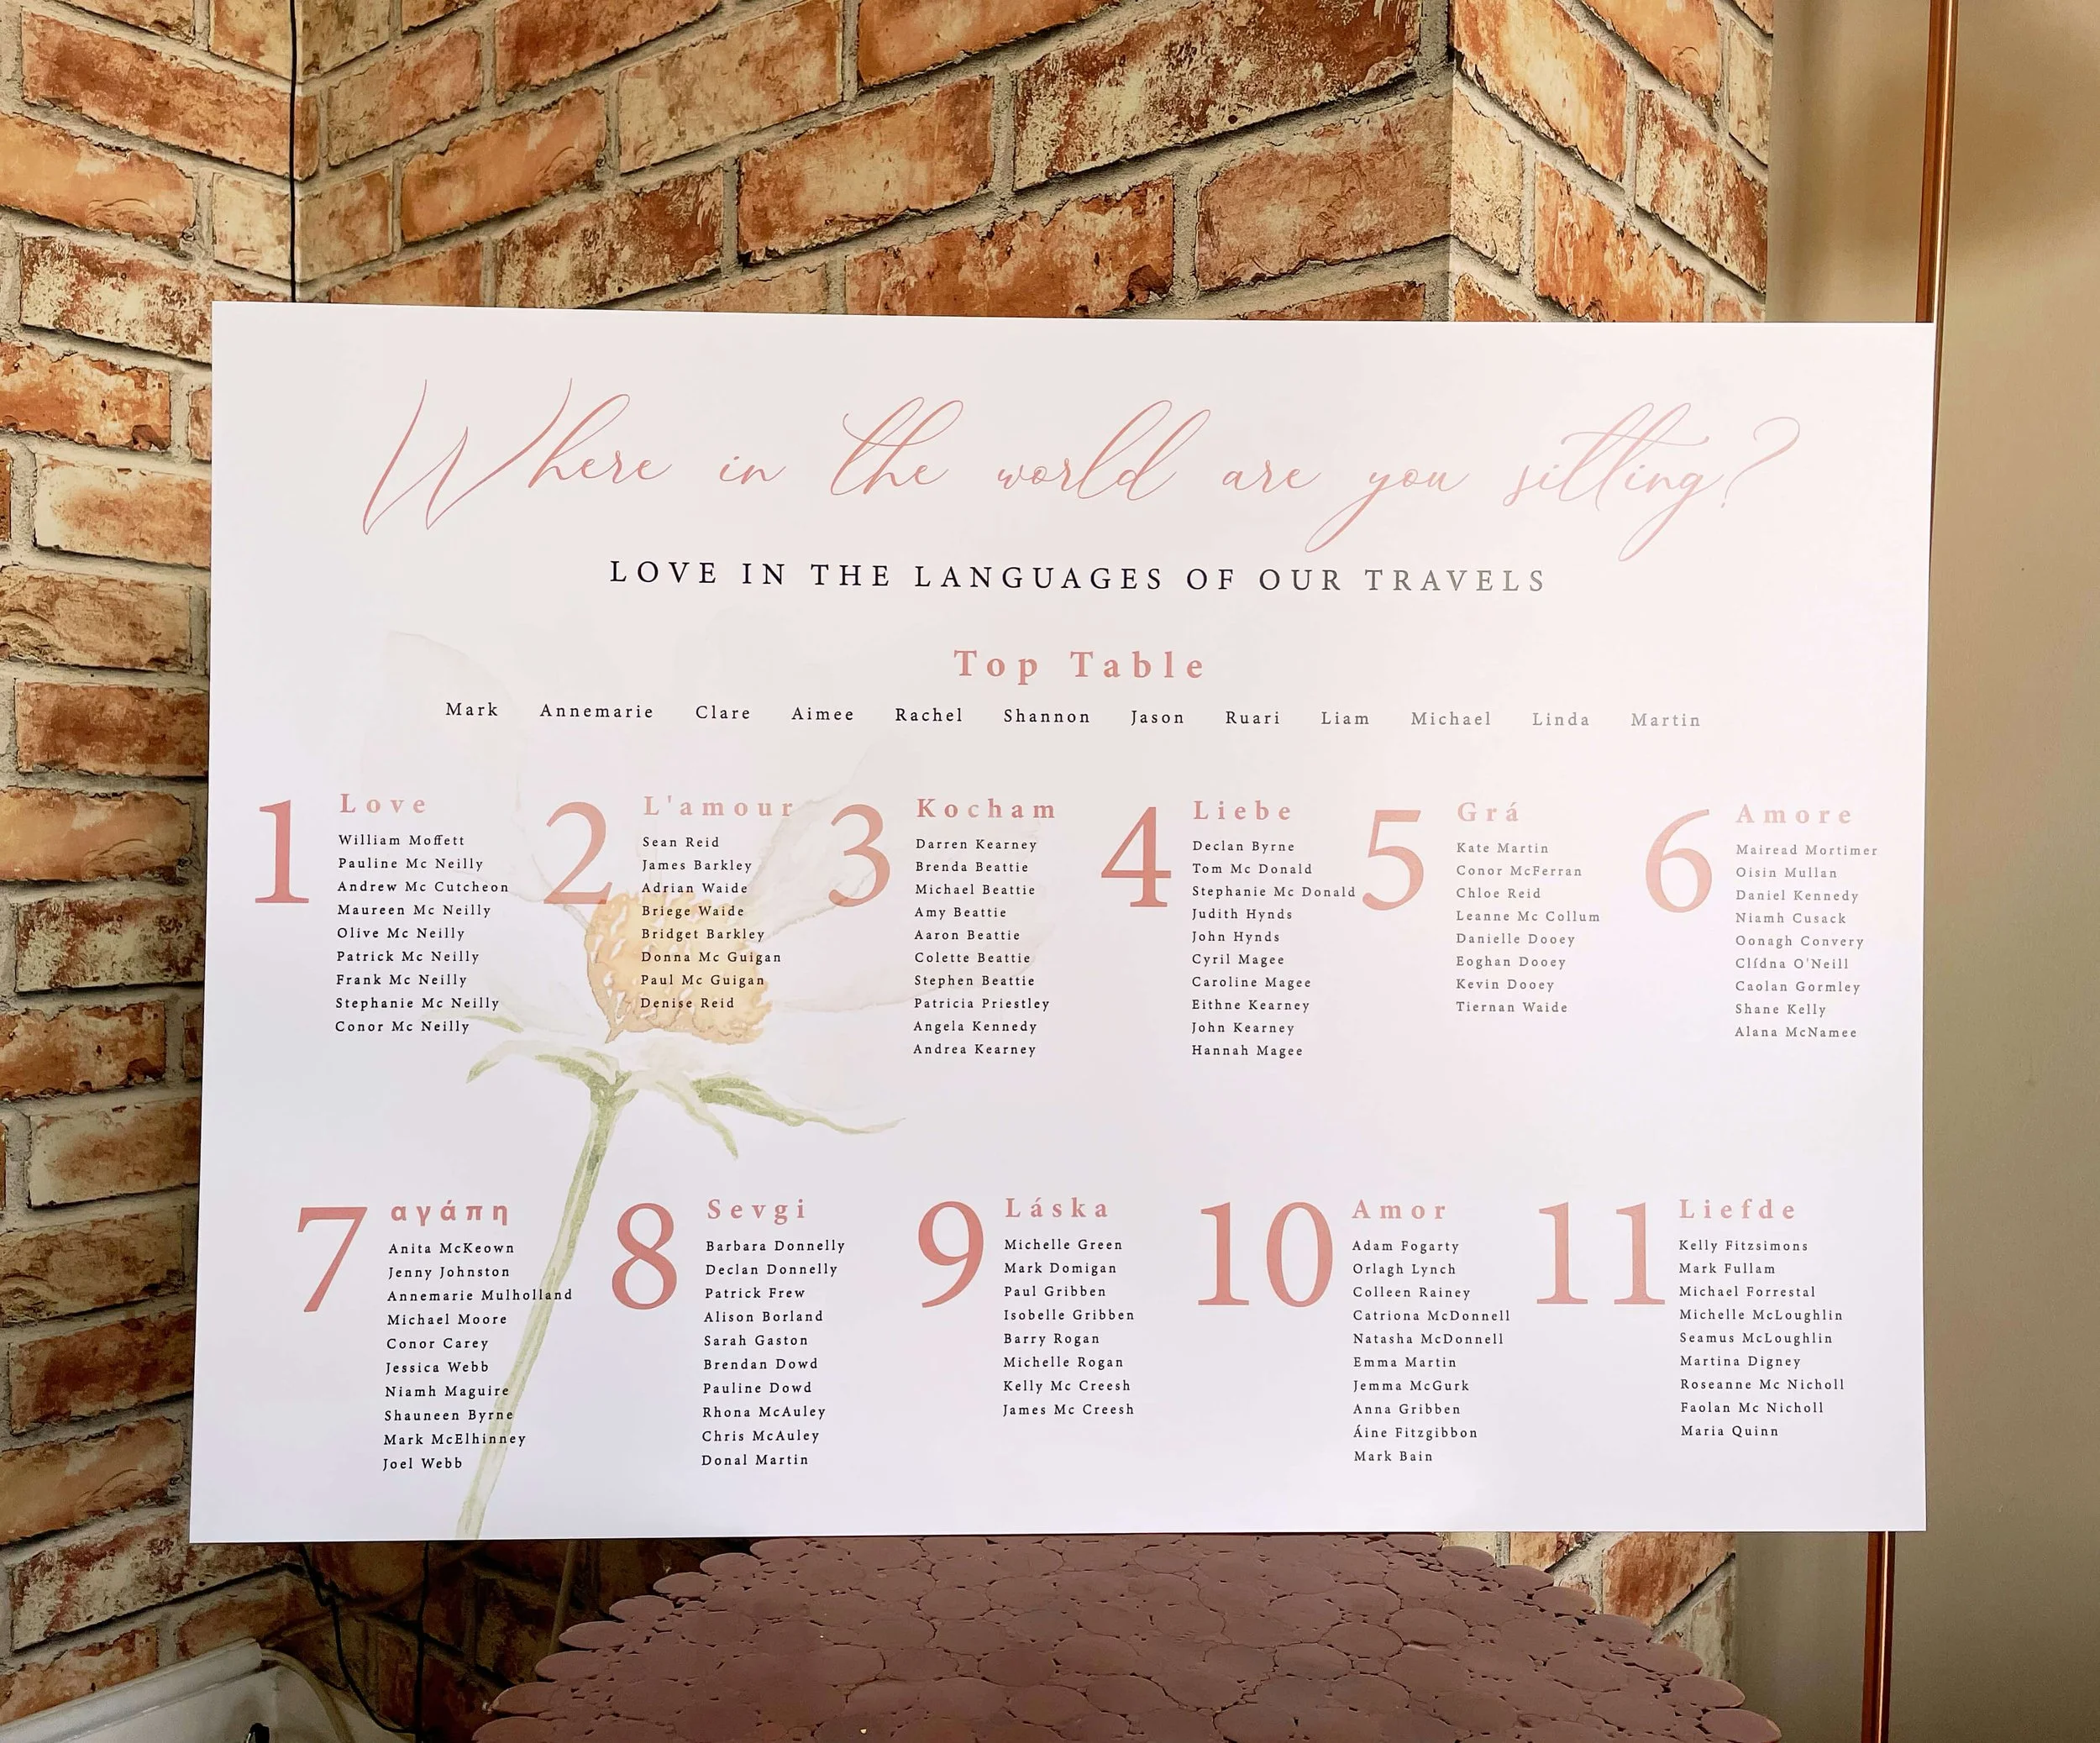 Where in the world are you sitting?
LOVE IN THE LANGUAGES OF OUR TRAVELS
Top Table
Mark Annemarie Clare Aimee Rachel Shannon Jason Ruari Liam Michael Linda Martin
1 Love
William Moffett
Pauline Mc Neilly
Andrew Mc Cutcheon
Maureen Mc Neilly
Olive Mc Neilly
Patrick Mc Neilly
Frank Mc Neilly
Stephanie Mc Neilly
Conor Mc Neilly
2 L'amour
Sean Reid
James Barkley
Adrian Waide
Briege Waide
Bridget Barkley
Donna Mc Guigan
Paul Mc Guigan
Denise Reid
3 Kocham
Darren Kearney
Brenda Beattie
Michael Beattie
Amy Beattie
Aaron Beattie
Colette Beattie
Stephen Beattie
Patricia Priestley
Angela Kennedy
Andrea Kearney
4 Liebe
Declan Byrne
Tom Mc Donald
Stephanie Mc Donald
Judith Hynds
John Hynds
Cyril Magee
Caroline Magee
Eithne Kearney
John Kearney
Hannah Magee
5 Grá
Kate Martin
Conor McFerran
Chloe Reid
Leanne Mc Collum
Danielle Dooey
Eoghan Dooey
Kevin Dooey
Tiernan Waide
6 Amore
Mairead Mortimer
Oisin Mullan
Daniel Kennedy
Niamh Cusack
Oonagh Convery
Clídna O'Neill
Caolan Gormley
Shane Kelly
Alana McNamee
7 αγάπη
Anita McKeown
Jenny Johnston
Annemarie Mulholland
Michael Moore
Conor Carey
Jessica Webb
Niamh Maguire
Shauneen Byrne
Mark McElhinney
Joel Webb
8 Sevgi
Barbara Donnelly
Declan Donnelly
Patrick Frew
Alison Borland
Sarah Gaston
Brendan Dowd
Pauline Dowd
Rhona McAuley
Chris McAuley
Donal Martin
9 Láska
Michelle Green
Mark Domigan
Paul Gribben
Isobelle Gribben
Barry Rogan
Michelle Rogan
Kelly Mc Creesh
James Mc Creesh
10 Amor
Adam Fogarty
Orlagh Lynch
Colleen Rainey
Catriona McDonnell
Natasha McDonnell
Emma Martin
Jemma McGurk
Anna Gribben
Áine Fitzgibbon
Mark Bain
11 Liefde
Kelly Fitzsimons
Mark Fullam
Michael Forrestal
Michelle McLoughlin
Seamus McLoughlin
Martina Digney
Roseanne Mc Nicholl
Faolan Mc Nicholl
Maria Quinn